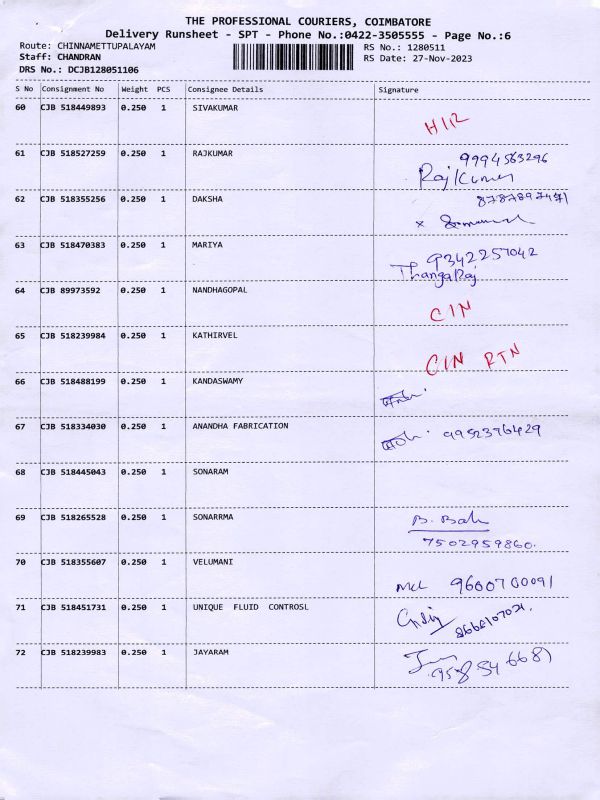 THE PROFESSIONAL COURIERS, COIMBATORE
Delivery Runsheet - SPT - Phone No.:0422-3505555 - Page No.:6
Route: CHINNAMETTUPALAYAM RS No.: 1280511
Staff: CHANDRAN RS Date: 27-Nov-2023
DRS No.: DCJB128051106
S No Consignment No Weight PCS Consignee Details Signature
60 CJB 518449893 0.250 1 SIVAKUMAR
61 CJB 518527259 0.250 1 RAJKUMAR 9994563296
Rajkumar
62 CJB 518355256 0.250 1 DAKSHA
63 CJB 518470383 0.250 1 MARIYA 9342257042
Thangaraj
64 CJB 89973592 0.250 1 NANDHAGOPAL
CIN
65 CJB 518239984 0.250 1 KATHIRVEL
CIN RTN
66 CJB 518488199 0.250 1 KANDASWAMY
67 CJB 518334030 0.250 1 ANANDHA FABRICATION 9952376429
68 CJB 518445043 0.250 1 SONARAM
69 CJB 518265528 0.250 1 SONARRMA B. Bah
7502959860.
70 CJB 518355607 0.250 1 VELUMANI
9600700091
71 CJB 518451731 0.250 1 UNIQUE FLUID CONTROSL
72 CJB 518239983 0.250 1 JAYARAM